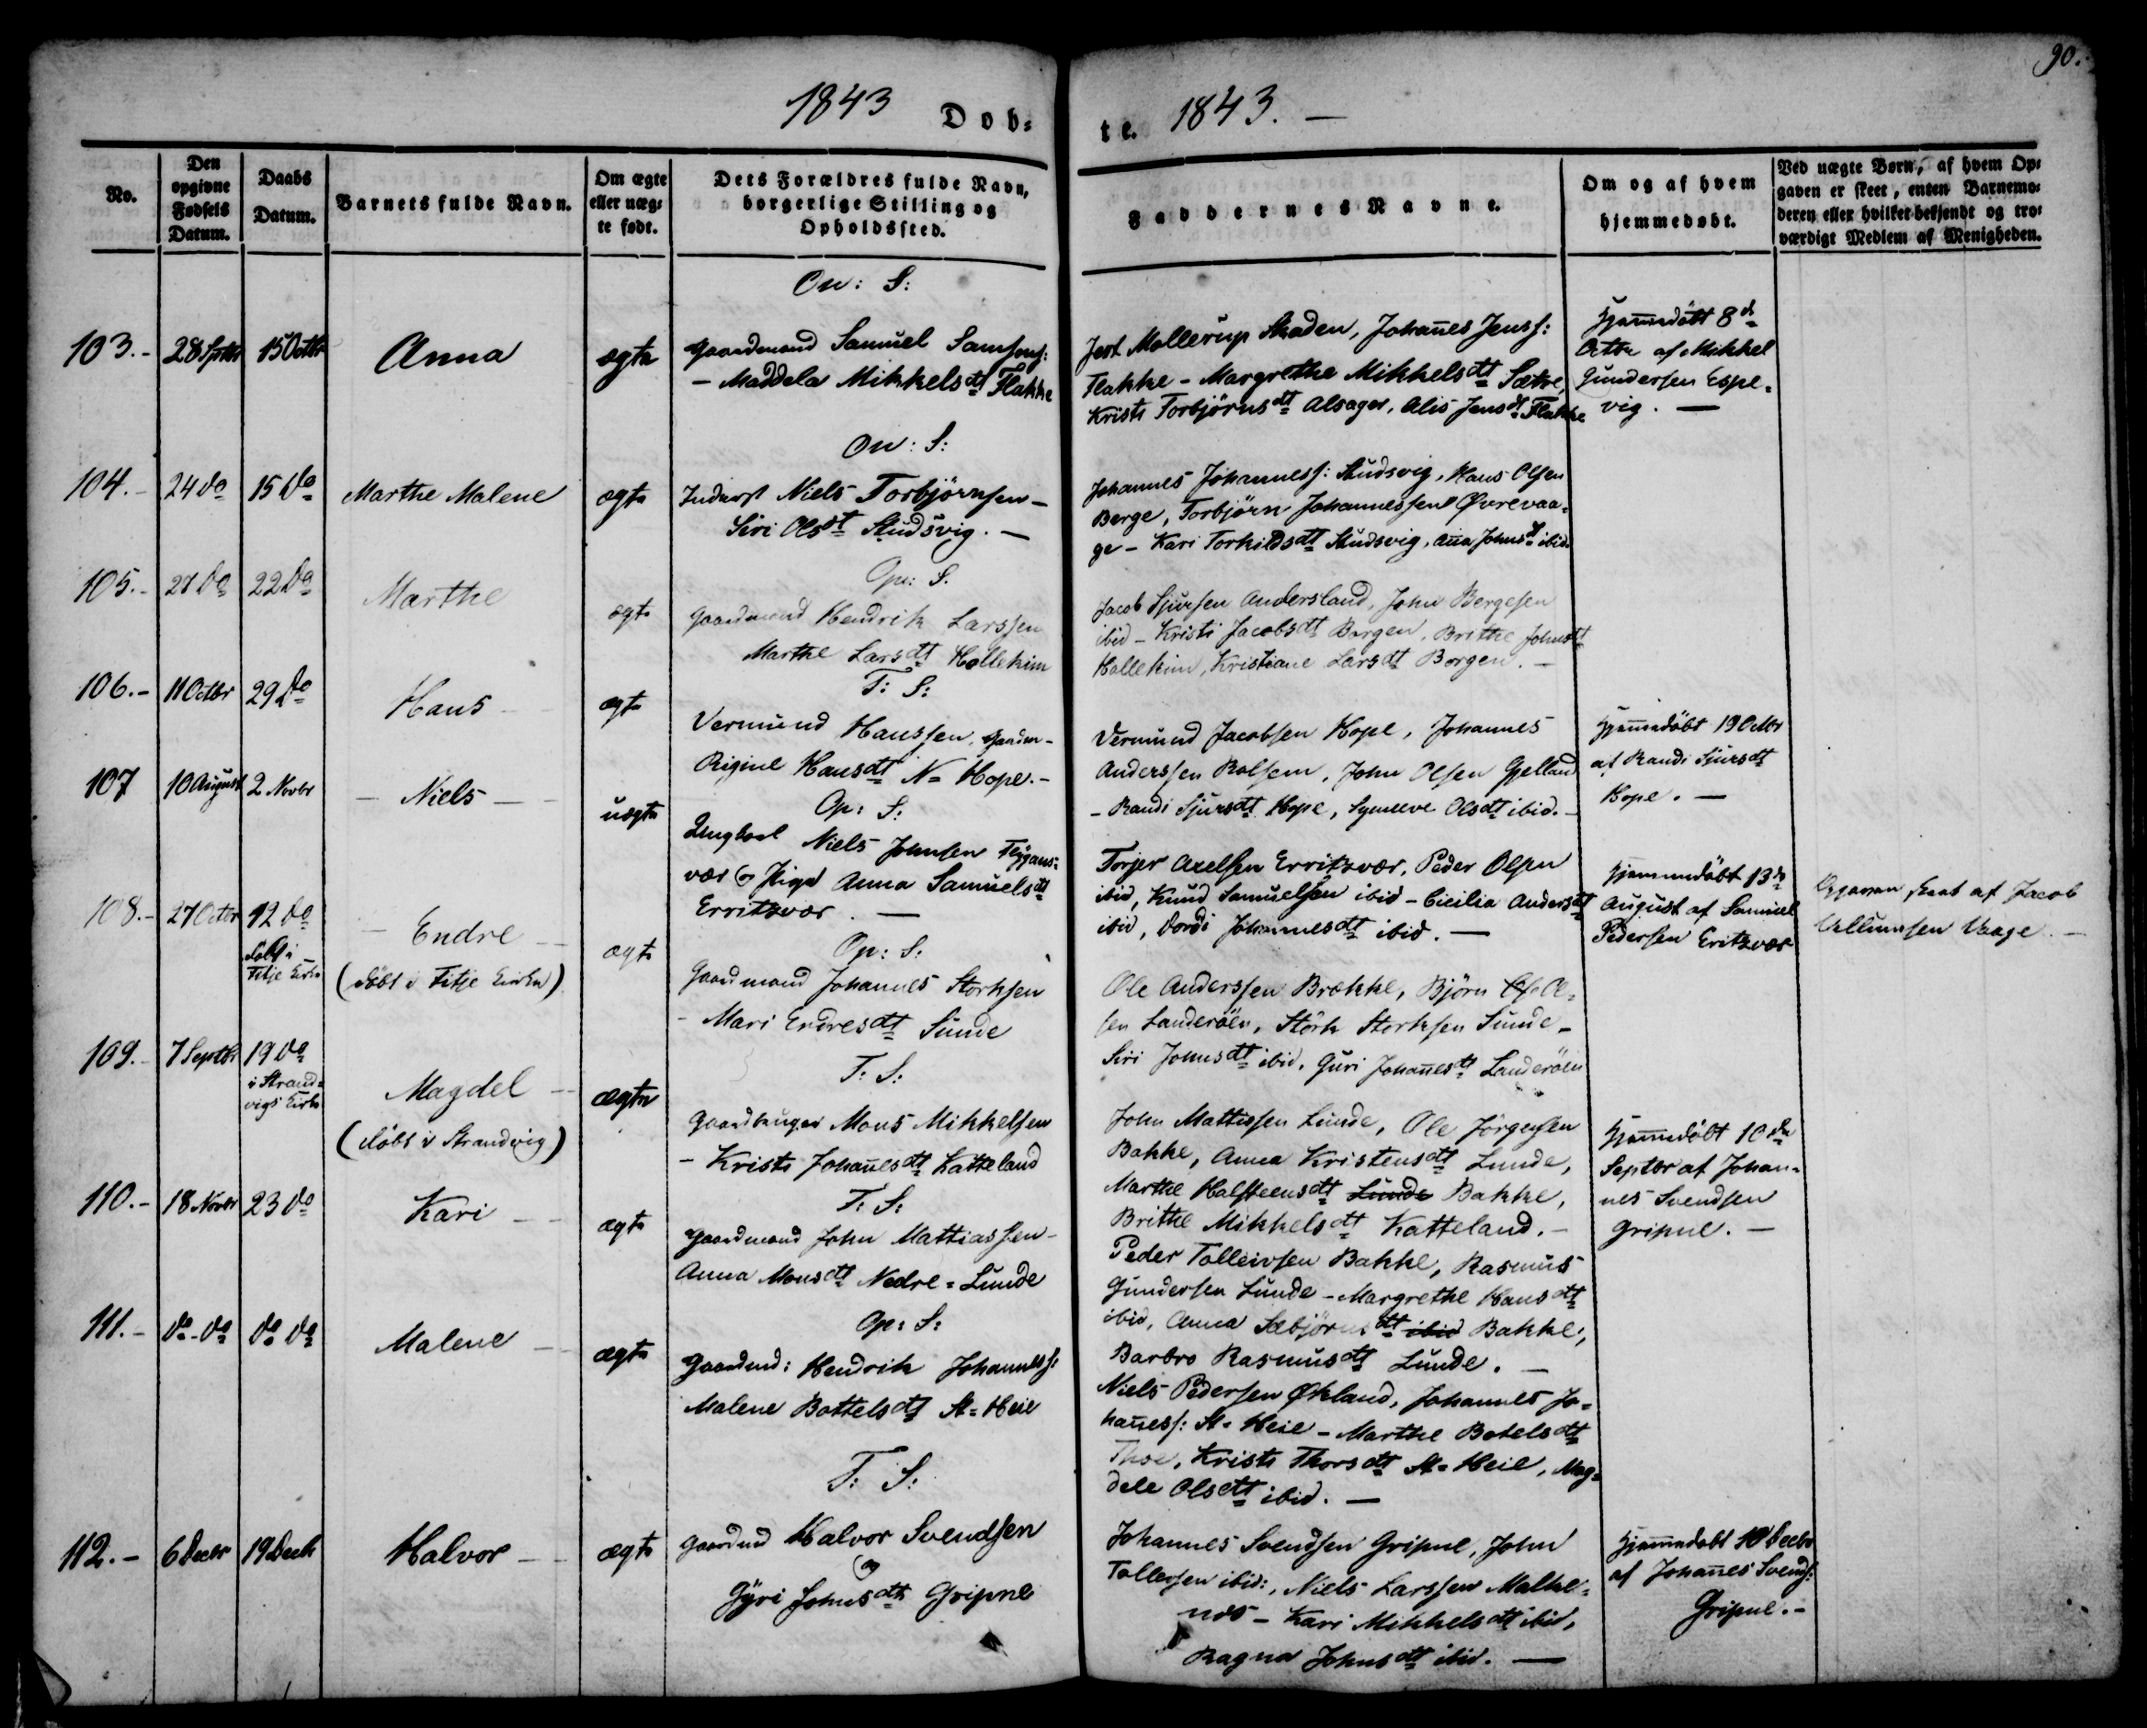 90.
1843 Døb-
te. 1843. —
No.
Den opgivne Fødsels Datum.
Daabs Datum.
Barnets fulde Navn.
Om ægte eller uæg- te født.
Dets Forældres fulde Navn, borgerlige Stilling og Opholdssted.
Faddernes Navne.
Om og af hvem hjemmedøbt.
Ved uægte Børn, af hvem Op- gaven er skeet, enten Barnemo- deren eller hvilket bekjendt og tro- værdigt Medlem af Menigheden.
On: S:
103.- 28 Septbr 15 Octbr Anna ægte
Gaardmand Samuel Samsons:
- Maddela Mikkelsdt Flakke
Jert Mollerup Skaden, Johanes Jens:
Flakke - Margrethe Mikkelsdt Sætre,
Kristi Torbjørnsdt Alsager, Alis Jensdt Flakke
Hjemmedöbt 8d
Octbr af Mikkel
Gundersen Espe-
vig. —
On: S:
104.- 24 do 15 do Marthe Malene ægte
Inderst Niels Torbjørnsen -
Siri Olsdt Studsvig. —
Johannes Johanness: Studsvig, Hans Olsen
Berge, Torbjørn Johannessen Øvrevaa-
ge - Kari Torkildsdt Studsvig, Ana Johnsdt ibid.
Op: S.
105.- 27 do 22 do Marthe ægte
Gaardmand Hendrik Larssen
Marthe Larsdt Hallekim
Jacob Sjursen Andersland, John Bergesen
ibid - Kristi Jacobsdt Borgen, Brithe Johnsdt
Hallekim, Kristiane Larsdt Borgen. —
T: S:
106.- 11 Octbr 29 do Hans ægte
Vermund Hanssen, Gaardm-
Rigine Hansdt N= Hope. -
Vermund Jacobsen Hope, Johannes
Anderssen Rolsem, John Olsen Gjelland
- Randi Sjursdt Hope, Synneve Olsdt ibid. -
Hjemmedöbt 19 Octbr
af Randi Sjursdt
Hope. —
Op: S:
107 10 August 2 Novbr - Niels - uægte
Ungkarl Niels Johnsen Figgans-
vær og Pige Anna Samuelsdt
Erritsvær. —
Torjer Axelsen Erritsvær, Peder Olsen
ibid, Knud Samuelsen ibid - Cicilia Andersdt
ibid, Dordi Johannesdt ibid. —
Hjemmedöbt 13de
August af Samuel
Pedersen Eritsvær
Opgaven skeet af Jacob
Vaage. —
Op: S:
108.- 27 Octbr 12 do - Endre - ægte
döbt i
Fitje Kirke
(döbt i Fitje Kirke)
Gaardmand Johannes Storksen
- Mari Endresdt Sunde
Ole Anderssen Brække, Björn Ol-
sen Landeröen, Störk Storksen Sunde -
Siri Johnsdt ibid, Guri Johanesdt Landeröen
T: S:
109.- 7 Septbr 19 do Magdel - ægte
i Strand-
vigs Kirke
(döbt i Strandvig)
Gaardbruger Mons Mikkelsen
- Kristi Johanesdt Katteland
John Mattissen Lunde, Ole Jörgensen
Bakke, Anna Kristensdt Lunde,
Marthe Halsteensdt Lunde Bakke,
Brithe Mikkelsdt Katteland. -
Hjemmedöbt 10de
Septbr af Johan-
nes Svendsen
Gripne. —
T: S:
110.- 18 Novbr 23 do Kari - ægte
Gaardmand John Mattiassen -
Anna Monsdt Nedre-Lunde
Peder Talleivsen Bakke, Rasmus
Gundersen Lunde - Margrethe Hansdt
ibid, Anna Sæbjörnsdt ibid Bakke,
Barbro Rasmusdt Lunde. —
Op: S:
111.- do - do do do Malene - ægte
Gaardmd: Hendrik Johanness:
Malene Bottelsdt St=Heie
Niels Pedersen Økland, Johannes Jo-
haness: St-Heie - Marthe Botelsdt
Kristi Thorsdt St-Heie, Mag-
dele Olsdt ibid. —
T: S:
112.- 6 Decbr 19 Decbr Halvor - ægte
Gaardmd Halvor Svendsen
og
Gyri Johnsdt Gripne
Johannes Svendsen Gripne, John
Tollefsen ibid:, Niels Larssen Malke-
næs - Kari Mikkelsdt ibid,
Ragna Johnsdt ibid. —
Hjemmedöbt 10 Decbr
af Johanes Svends:
Gripne. -